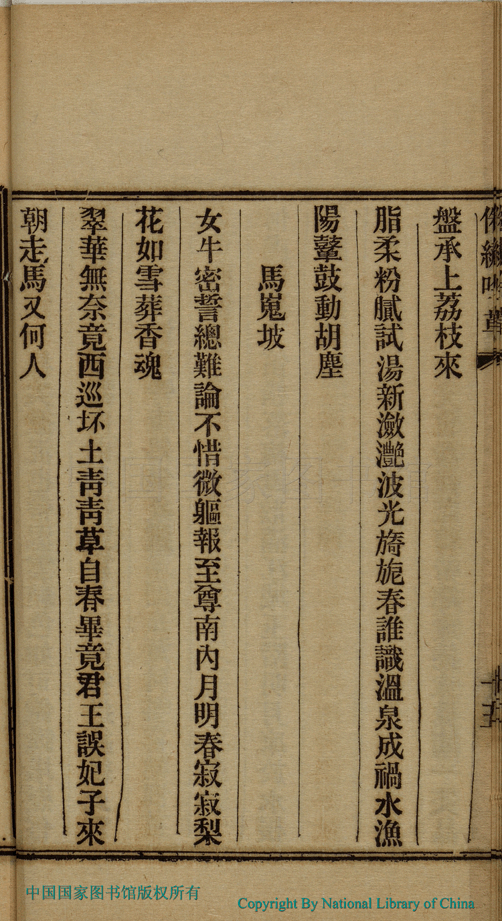 盤承上荔枝來
脂柔粉膩試湯新瀲灧波光旖旎春誰識溫泉成禍水漁
陽鼙鼓動胡塵
馬嵬坡
女牛密誓總難論不惜微軀報至尊南內月明春寂寂梨
花如雪葬香魂
翠華無奈竟西巡坏土靑靑草自春畢竟君王誤妃子來
朝走馬又何人
中国国家图书馆版权所有
Copyright By National Library of China